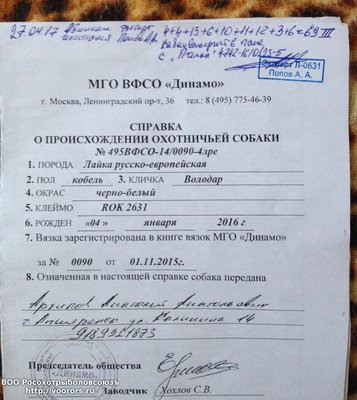 27.04.17
4+4+13+6+10+11+12+3+6=69 III
Эксперт Л-0631
Попов А. А.
МГО ВФСО «Динамо»
г. Москва, Ленинградский пр-т, 36 тел.: 8 (495) 775-46-39
СПРАВКА
О ПРОИСХОЖДЕНИИ ОХОТНИЧЬЕЙ СОБАКИ
№ 495ВФСО-14/0090-4лре
1. ПОРОДА Лайка русско-европейская
2. ПОЛ кобель 3. КЛИЧКА Володар
4. ОКРАС черно-белый
5. КЛЕЙМО ROK 2631
6. РОЖДЕН «04» января 2016 г
7. Вязка зарегистрирована в книге вязок МГО «Динамо»
за № 0090 от 01.11.2015г.
8. Означенная в настоящей справке собака передана
Архипов Анатолий Анатольевич
ул Калинина 14
Председатель общества
«Динамо»
Заводчик Хохлов С.В.
ВОО Росохотрыболовсоюзъ
http://voorors.ru